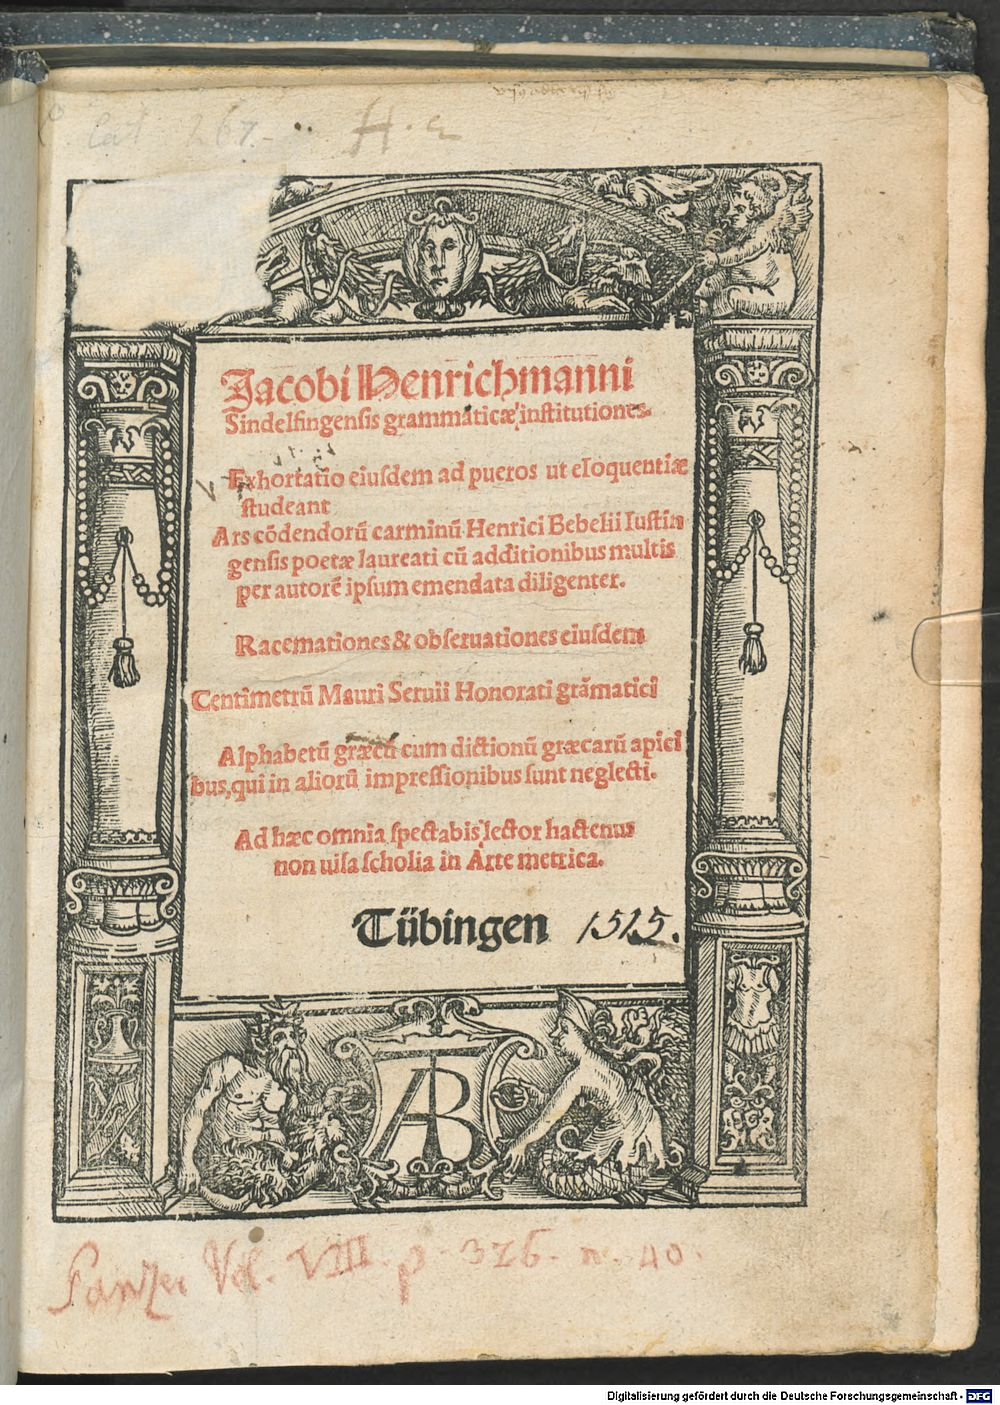 Cat 267.
H. a
Jacobi Henrichmanni
Sindelfingensis grammaticæ institutiones.
Exhortatio eiusdem ad pueros ut eloquentiæ
studeant
Ars cõdendorũ carminũ Henrici Bebelii Iustin
gensis poetæ laureati cũ additionibus multis
per autorẽ ipsum emendata diligenter.
Racemationes & obseruationes eiusdem
Centimetrũ Mauri Seruii Honorati grãmatici
Alphabetũ græcũ cum dictionũ græcarũ apici
bus, qui in aliorũ impressionibus sunt neglecti.
Ad hæc omnia spectabis lector hactenus
non uisa scholia in Arte metrica.
Tübingen 1515.
AB
Panzer Vol. VIII. p. 326. n. 40.
Digitalisierung gefördert durch die Deutsche Forschungsgemeinschaft - DFG